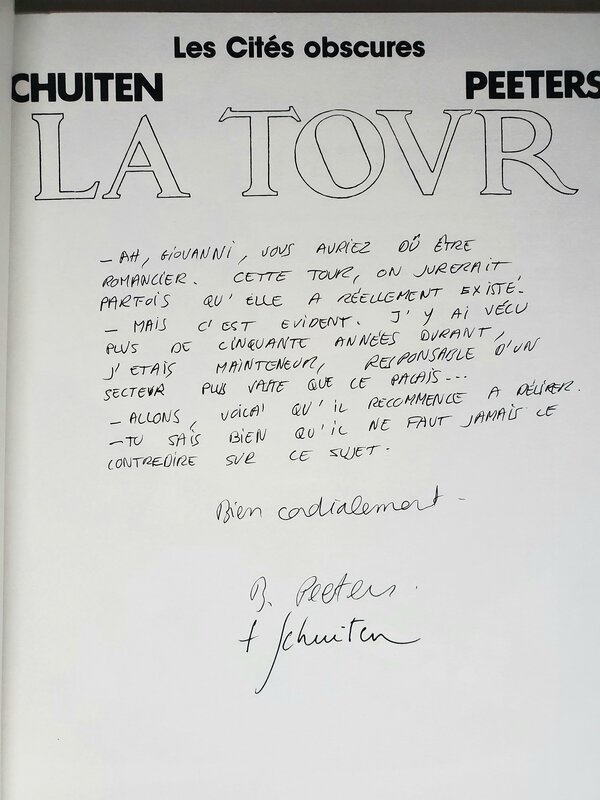 Les Cités obscures
CHUITEN PEETERS
LA TOVR
– AH, GIOVANNI, VOUS AURIEZ DÛ ÊTRE
ROMANCIER. CETTE TOUR, ON JURERAIT,
PARFOIS QU'ELLE A RÉELLEMENT EXISTÉ.
– MAIS C'EST EVIDENT. J'Y AI VÉCU
PLUS DE CINQUANTE ANNÉES DURANT,
J'ETAIS MAINTENEUR, RESPONSABLE D'UN
SECTEUR PLUS VASTE QUE CE PALAIS...
– ALLONS, VOILA QU'IL RECOMMENCE A DÉLIRER.
– TU SAIS BIEN QU'IL NE FAUT JAMAIS LE
CONTREDIRE SUR CE SUJET.
Bien cordialement –
B. Peeters.
+ Schuiten